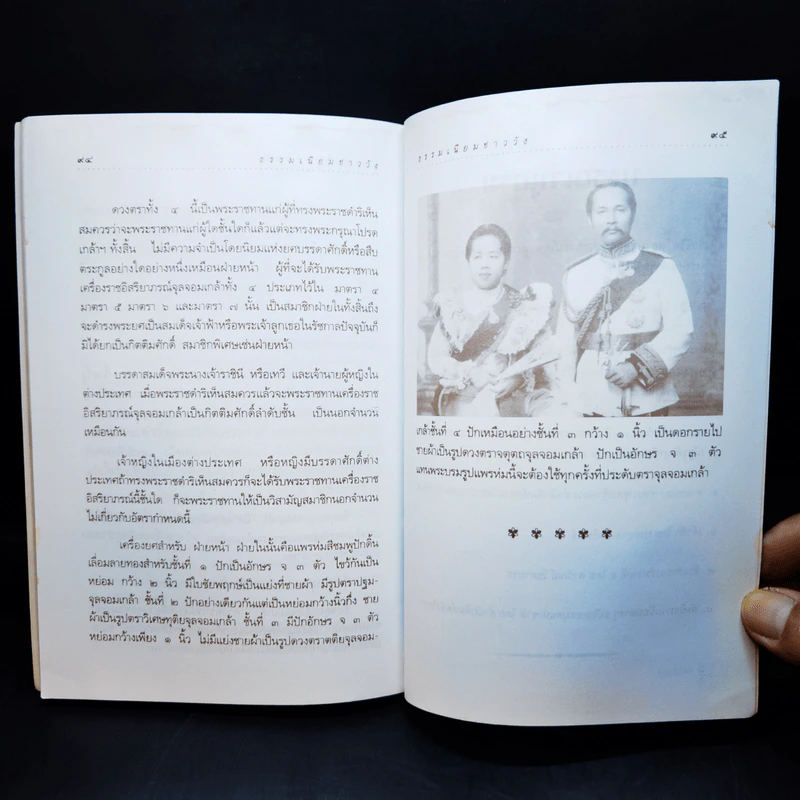 ๙๔
ธรรมเนียมชาววัง
ดวงตราทั้ง ๔ นี้เป็นพระราชทานแก่ผู้ที่ทรงพระราชดำริเห็น
สมควรว่าจะพระราชทานแก่ผู้ใดชั้นใดก็แล้วแต่จะทรงพระกรุณาโปรด
เกล้าฯ ทั้งสิ้น ไม่มีความจำเป็นโดยนิยมแห่งยศบรรดาศักดิ์หรือสืบ
ตระกูลอย่างใดอย่างหนึ่งเหมือนฝ่ายหน้า ผู้ที่จะได้รับพระราชทาน
เครื่องราชอิสริยาภรณ์จุลจอมเกล้าทั้ง ๔ ประเภทไว้ใน มาตรา ๔
มาตรา ๕ มาตรา ๖ และมาตรา ๗ นั้น เป็นสมาชิกฝ่ายในทั้งสิ้นถึง
จะดำรงพระยศเป็นสมเด็จเจ้าฟ้าหรือพระเจ้าลูกเธอในรัชกาลปัจจุบันก็
มิได้ยกเป็นกิตติมศักดิ์ สมาชิกพิเศษเช่นฝ่ายหน้า
บรรดาสมเด็จพระนางเจ้าราชินี หรือเทวี และเจ้านายผู้หญิงใน
ต่างประเทศ เมื่อพระราชดำริเห็นสมควรแล้วจะพระราชทานเครื่องราช
อิสริยาภรณ์จุลจอมเกล้าเป็นกิตติมศักดิ์ลำดับชั้น เป็นนอกจำนวน
เหมือนกัน
เจ้าหญิงในเมืองต่างประเทศ หรือหญิงมีบรรดาศักดิ์ต่าง
ประเทศถ้าทรงพระราชดำริเห็นสมควรก็จะได้รับพระราชทานเครื่องราช
อิสริยาภรณ์นี้ชั้นใด ก็จะพระราชทานให้เป็นวิสามัญสมาชิกนอกจำนวน
ไม่เกี่ยวกับอัตรากำหนดนี้
เครื่องยศสำหรับ ฝ่ายหน้า ฝ่ายในนั้นคือแพรห่มสีชมพูปักดิ้น
เลื่อมลายทองสำหรับชั้นที่ ๑ ปักเป็นอักษร จ ๓ ตัว ไขว้กันเป็น
หย่อม กว้าง ๒ นิ้ว มีใบชัยพฤกษ์เป็นแย่งที่ชายผ้า มีรูปตราปฐม-
จุลจอมเกล้า ชั้นที่ ๒ ปักอย่างเดียวกันแต่เป็นหย่อมกว้างนิ้วกึ่ง ชาย
ผ้าเป็นรูปตราวิเศษทุติยจุลจอมเกล้า ชั้นที่ ๓ มีปักอักษร จ ๓ ตัว
หย่อมกว้างเพียง ๑ นิ้ว ไม่มีแย่งชายผ้าเป็นรูปดวงตราตติยจุลจอม-
๙๕
ธรรมเนียมชาววัง
เกล้าชั้นที่ ๔ ปักเหมือนอย่างชั้นที่ ๓ กว้าง ๑ นิ้ว เป็นดอกรายไป
ชายผ้าเป็นรูปดวงตราจตุตถจุลจอมเกล้า ปักเป็นอักษร จ ๓ ตัว
แทนพระบรมรูปแพรห่มนี้จะต้องใช้ทุกครั้งที่ประดับตราจุลจอมเกล้า